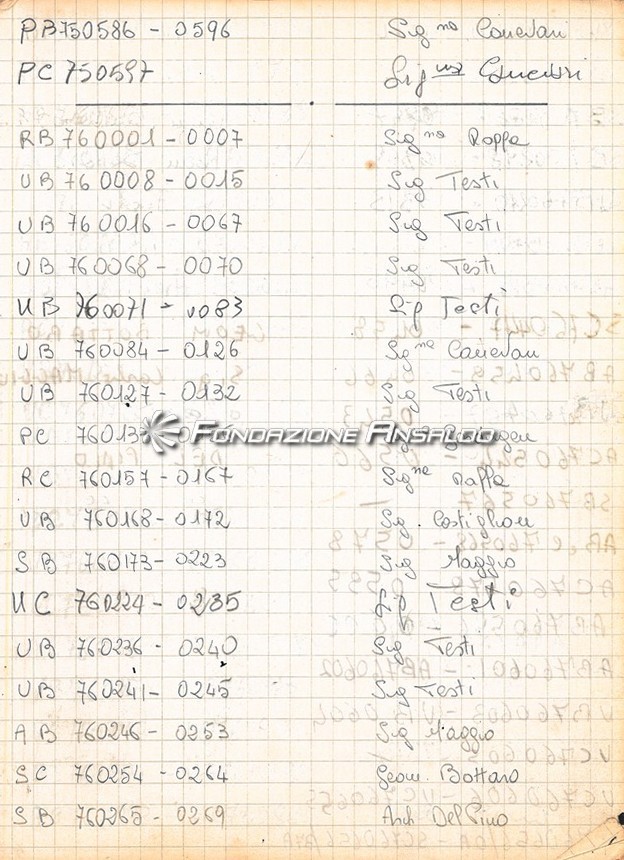 PB 750586 - 0596 Sig na Canevari
PC 750597 Sig na Canevari
RB 760001 - 0007 Sig na Raffa
UB 760008 - 0015 Sig Testi
UB 760016 - 0067 Sig Testi
UB 760068 - 0070 Sig Testi
UB 760071 - 0083 Sig Testi
UB 760084 - 0126 Sig na Canevari
UB 760127 - 0132 Sig Testi
PC
FONDAZIONE ANSALDO
RC 760157 - 0167 Sig na Raffa
UB 760168 - 0172 Sig. Costiglioli
SB 760173 - 0223 Sig Maggio
UC 760224 - 0235 Sig Testi
UB 760236 - 0240 Sig Testi
UB 760241 - 0245 Sig Testi
AB 760246 - 0253 Sig Maggio
SC 760254 - 0264 Geom. Bottaro
SB 760265 - 0269 Arch Del Pino